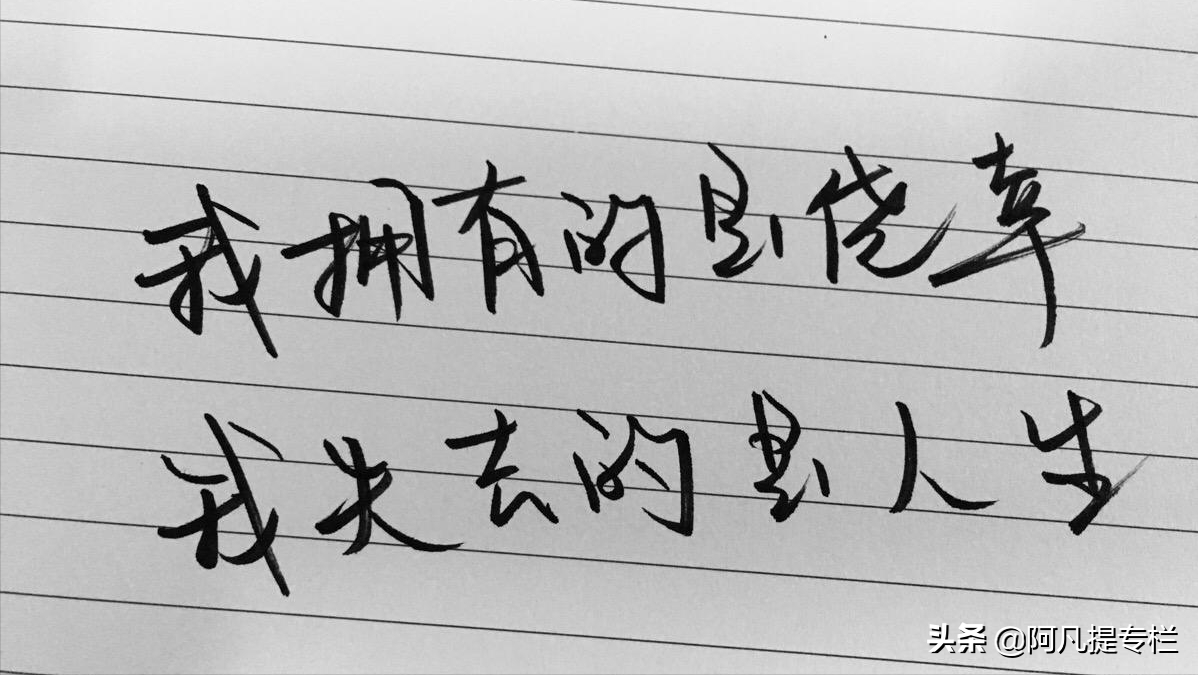 我拥有的是侥幸
我失去的是人生
头条 @阿凡提专栏